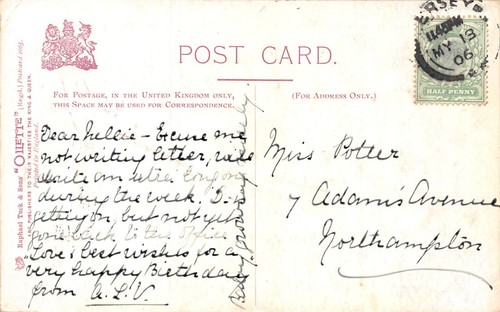 POST CARD.
FOR POSTAGE, IN THE UNITED KINGDOM ONLY,
THIS SPACE MAY BE USED FOR CORRESPONDENCE.
(FOR ADDRESS ONLY.)
Raphael Tuck & Sons' "OILETTE" [Regd.] Postcard
ART PUBLISHERS TO THEIR MAJESTIES THE KING & QUEEN.
ERSEY
11.45PM
MY 18
06
HALF PENNY
Dear Nellie – Excuse me
not writing letter, will
write
during the week. I'm
getting on, but not yet
gone back to the office
Love & best wishes for a
very happy Birthday
from A.L.V.
Baby growing
Miss Potter
7 Adam's Avenue
Northampton